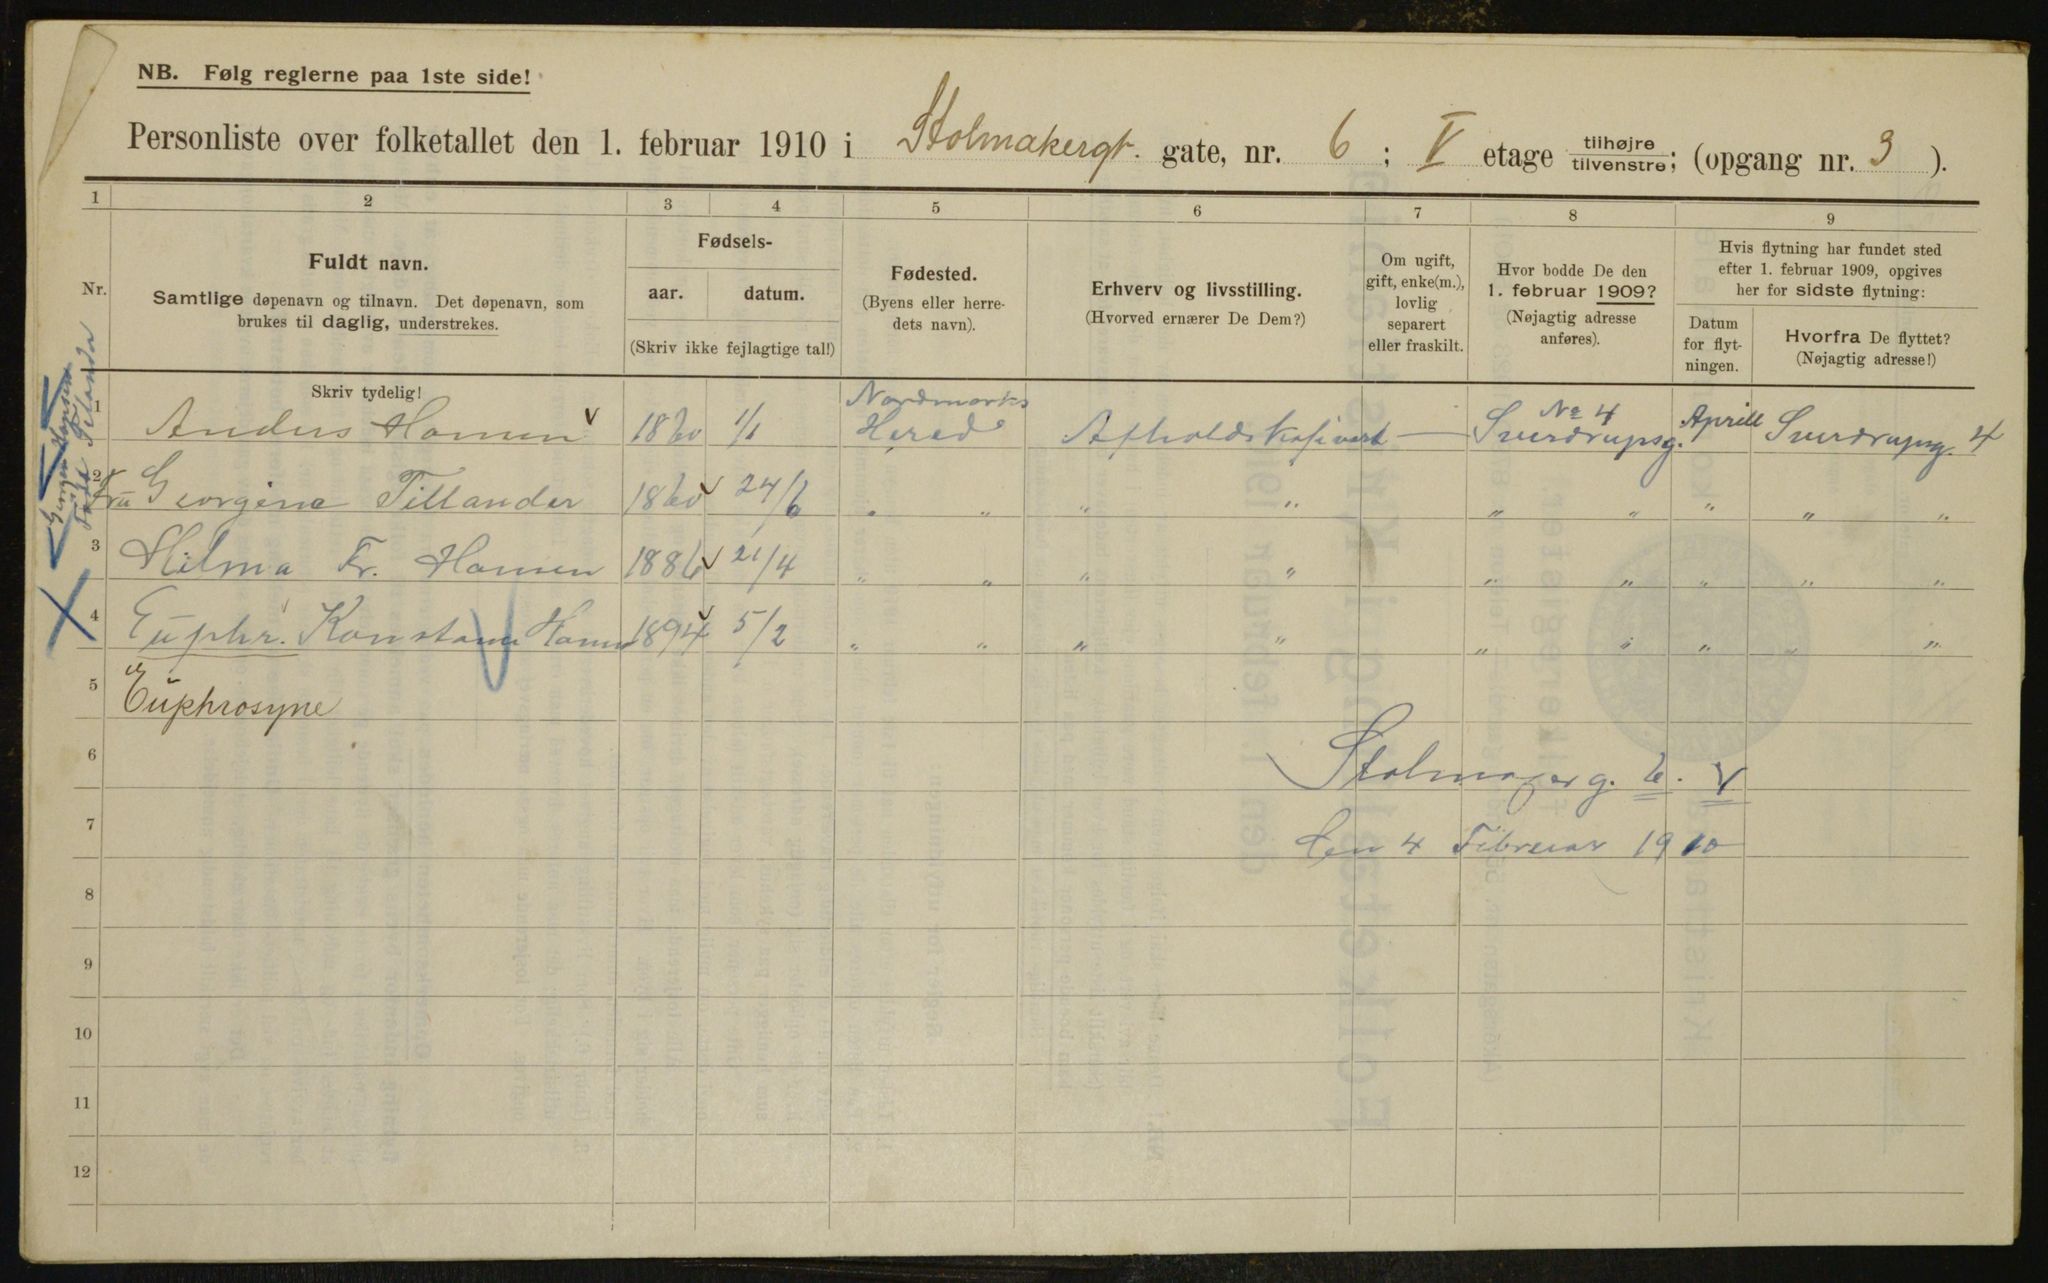 NB. Følg reglerne paa 1ste side!
Personliste over folketallet den 1. februar 1910 i Stolmakergt. gate, nr. 6 ; V etage tilhøjre tilvenstre; (opgang nr. 3 ).
1 2 3 4 5 6 7 8 9
Nr.
Fuldt navn.
Samtlige døpenavn og tilnavn. Det døpenavn, som
brukes til daglig, understrekes.
Skriv tydelig!
Fødsels-
aar. datum.
(Skriv ikke fejlagtige tal!)
Fødested.
(Byens eller herre-
dets navn).
Erhverv og livsstilling.
(Hvorved ernærer De Dem?)
Om ugift,
gift, enke(m.),
lovlig
separert
eller fraskilt.
Hvor bodde De den
1. februar 1909?
(Nøjagtig adresse
anføres).
Hvis flytning har fundet sted
efter 1. februar 1909, opgives
her for sidste flytning:
Datum
for flyt-
ningen.
Hvorfra De flyttet?
(Nøjagtig adresse!)
1 Anders Hansen 1860 1/1 Nordmarks Herred Afholdskafivert — Sverdrupsg. No 4 Aprill Sverdrupsg. 4
2 Fru Georgine Tillander 1860 24/6 " " " " " " " " "
3 Hilma Fr. Hansen 1886 21/4 " " " " " " " " "
4 Euphr. Konstanse Hansen 1894 5/2 " " " " " " " " "
5 Euphrosyne
6 Stolmagerg. 6. V
7 Den 4 Februar 1910
8
9
10
11
12